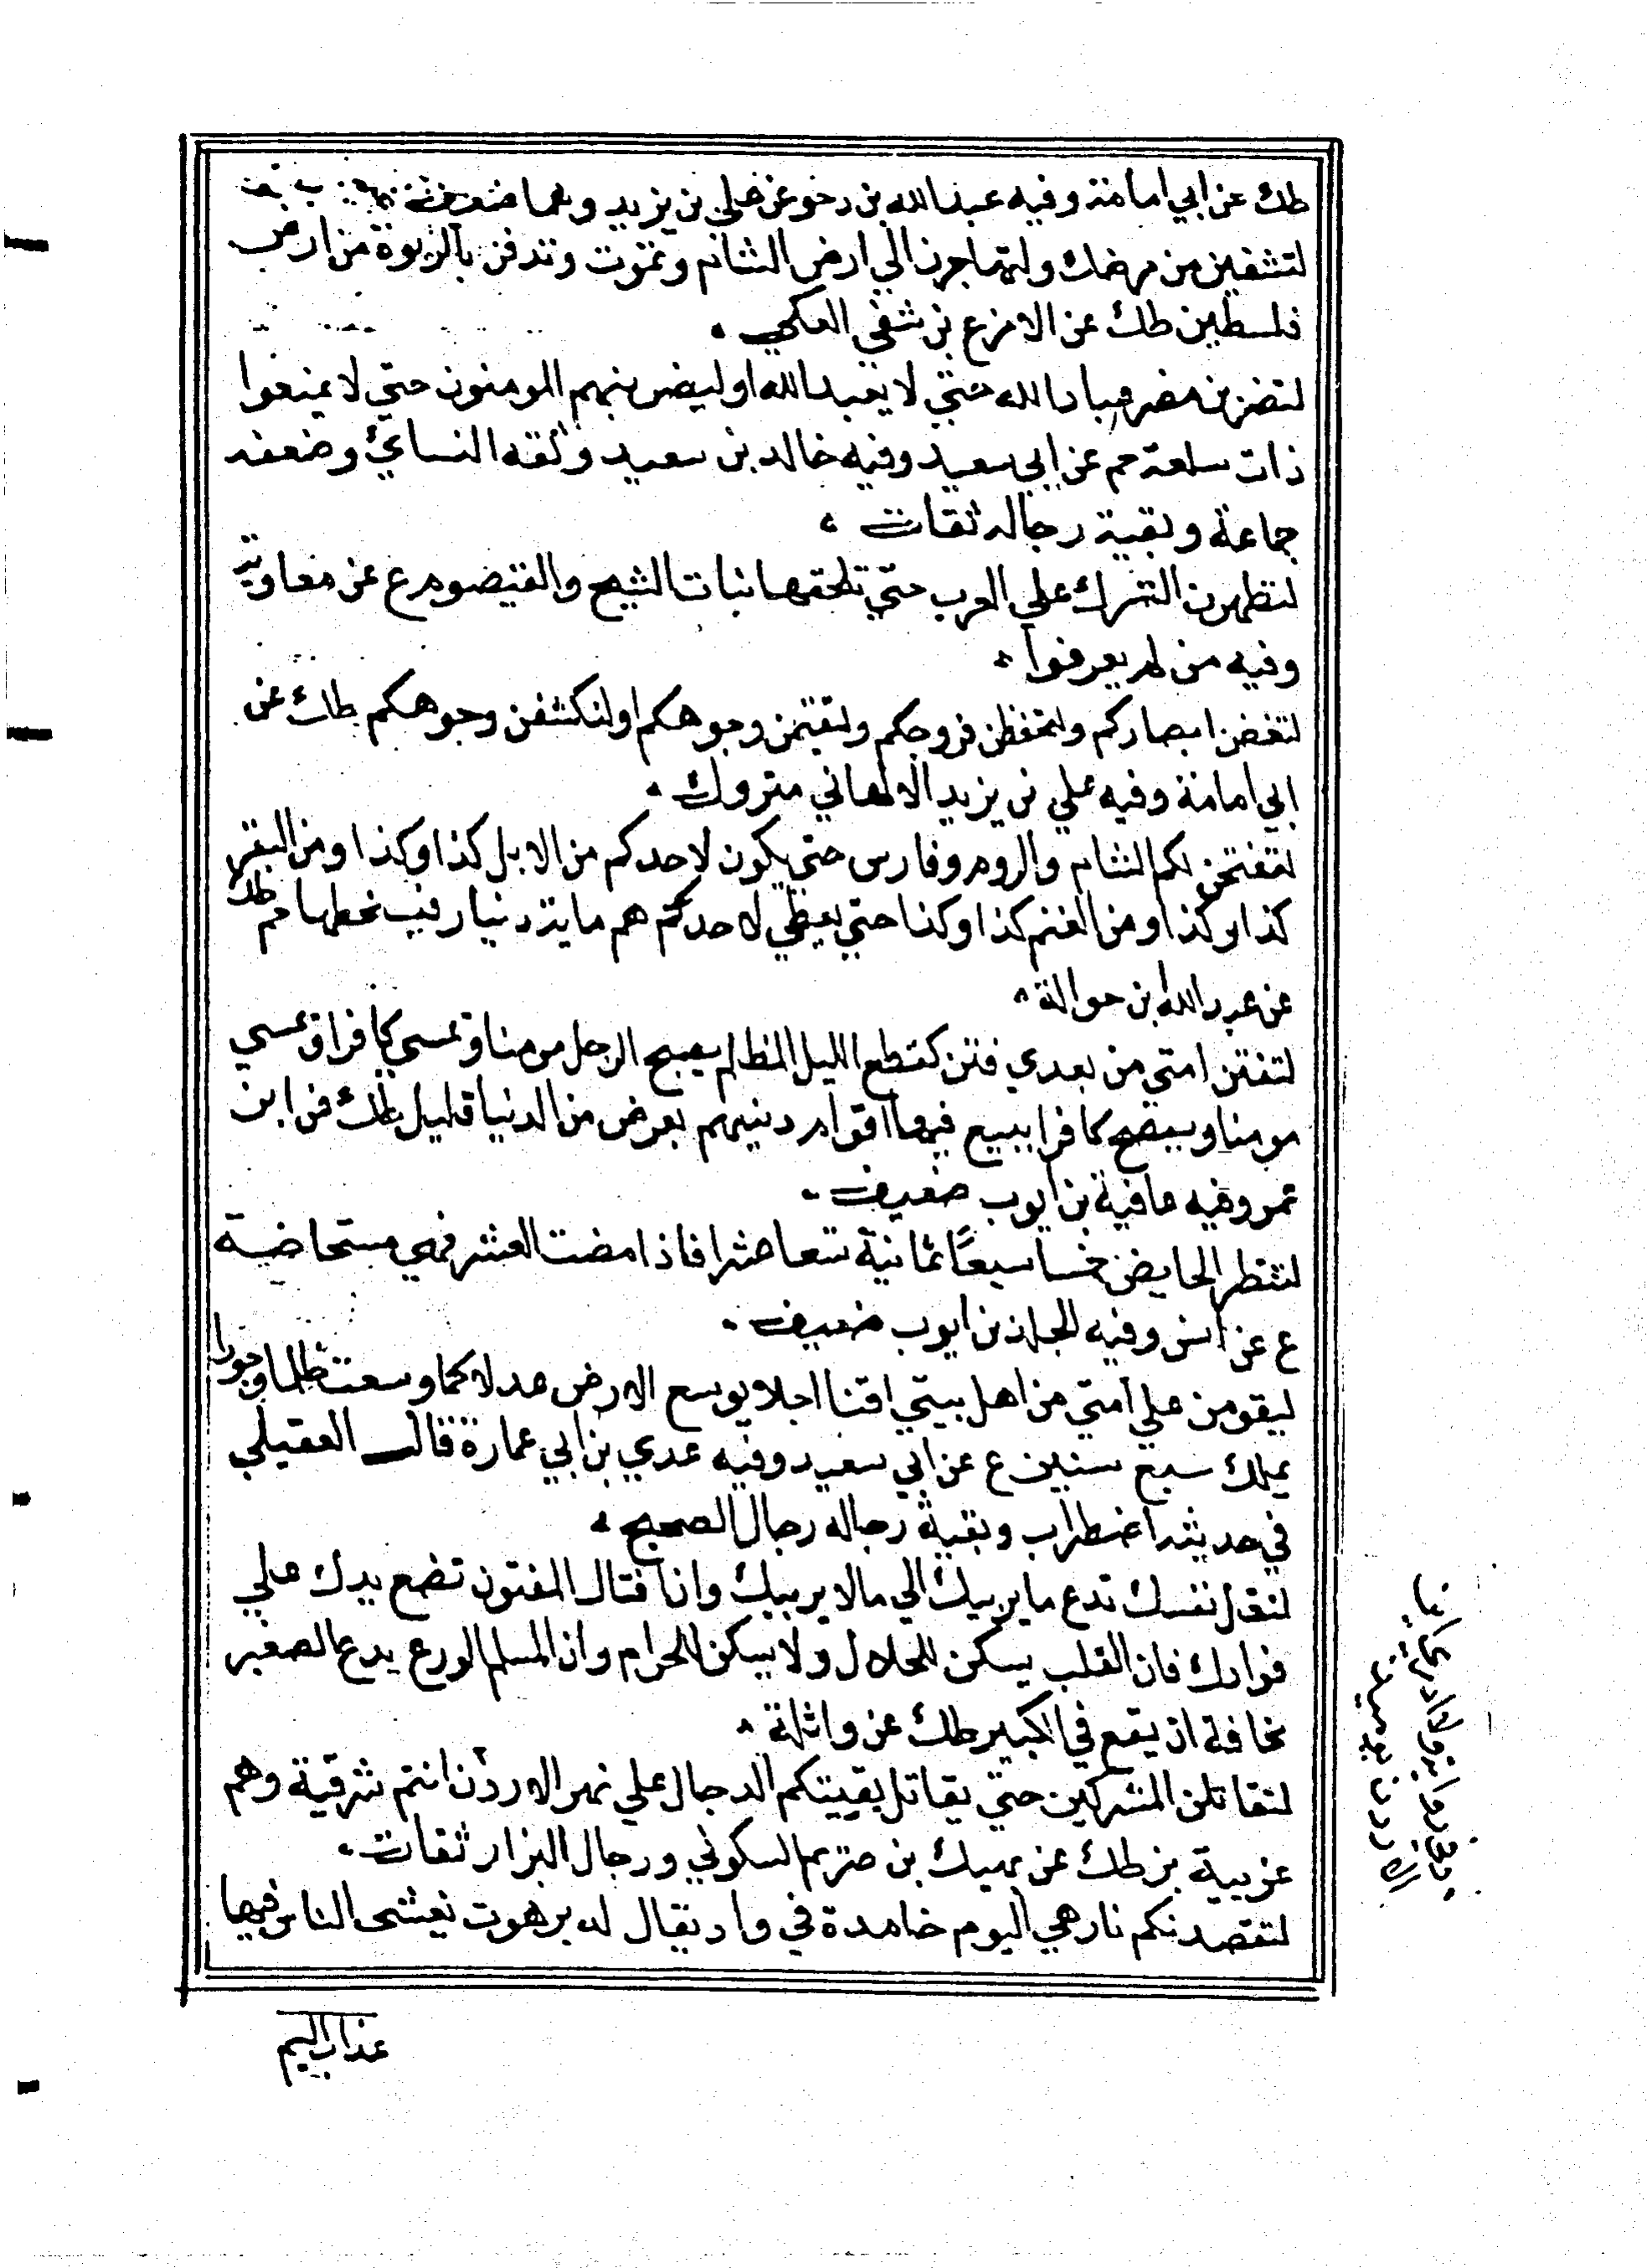 طك عن ابي امامة وفيه عبد الله بن زحر عن علي بن يزيد وهما ضعيفان
لتشفين من مرضك ولتهاجرن الي ارض الشام وتموت وتدفن بالربوة من ارض
فلسطين طك عن الاقرع بن شفي العكي
لتضربن مضر عباد الله حتي لا يعبد الله او ليضربنهم المومنون حتي لا يمنعوا
ذات سلعة حم عن ابي سعيد وفيه خالد بن سعيد وثقه النسائي وضعفه
جماعة وبقية رجاله ثقات
لتظهرن الترك علي العرب حتي تلحقها نبات الشيح والقيصوم ع عن معاوية
وفيه من لم يعرفوا
لتغضن ابصاركم ولتحفظن فروجكم ولتقيمن وجوهكم او لتكشفن وجوهكم طك عن
ابي امامة وفيه علي بن يزيد الالهاني متروك
لتفتحن لكم الشام والروم وفارس حتي يكون لاحدكم من الابل كذا وكذا ومن البقر
كذا وكذا ومن الغنم كذا وكذا حتي يعطي لاحدكم هم ماية دنيار فيسخطها حم طك
عن عبد الله بن حوالة
لتفتن امتي من بعدي فتن كقطع الليل المظلم يصبح الرجل مومنا ويمسي كافرا ويمسي
مومنا ويصبح كافرا يبيع فيها اقوام دينهم بعرض من الدنيا قليل طك عن ابن
عمر وفيه عافية بن ايوب ضعيف
لتنتظر الحايض خمسا سبعًا ثمانية تسعا عشرا فاذا مضت العشر فهي مستحاضة
ع عن انس وفيه الجلد بن ايوب ضعيف
ليقومن علي امتي من اهل بيتي اقنا اجلا يوسع الارض عدلا كما وسعت ظلما وجورا
يملك سبع سنين ع عن ابي سعيد وفيه عدي بن ابي عمارة قال العقيلي
في حديثه اضطراب وبقية رجاله رجال الصحيح
نفسك تدع ما يريبك الي مالا يريبك وان افتاك المفتون تضع يدك علي
فوادك فان القلب يسكن للحلال ولا يسكن للحرام وان المسلم الورع يدع الصغير
مخافة ان يقع في الكبير طك عن واثلة
لتقاتلن المشركين حتي يقاتل بقيتكم الدجال علي نهر الاردن انتم شرقية وهم
غربية بز طك عن نهيك بن صريم السكوني ورجال البزار ثقات
لتقصدنكم نار هي اليوم خامدة في واد يقال له برهوت يغشي الناس فيها
عذاب اليم
الاردن يوميذ